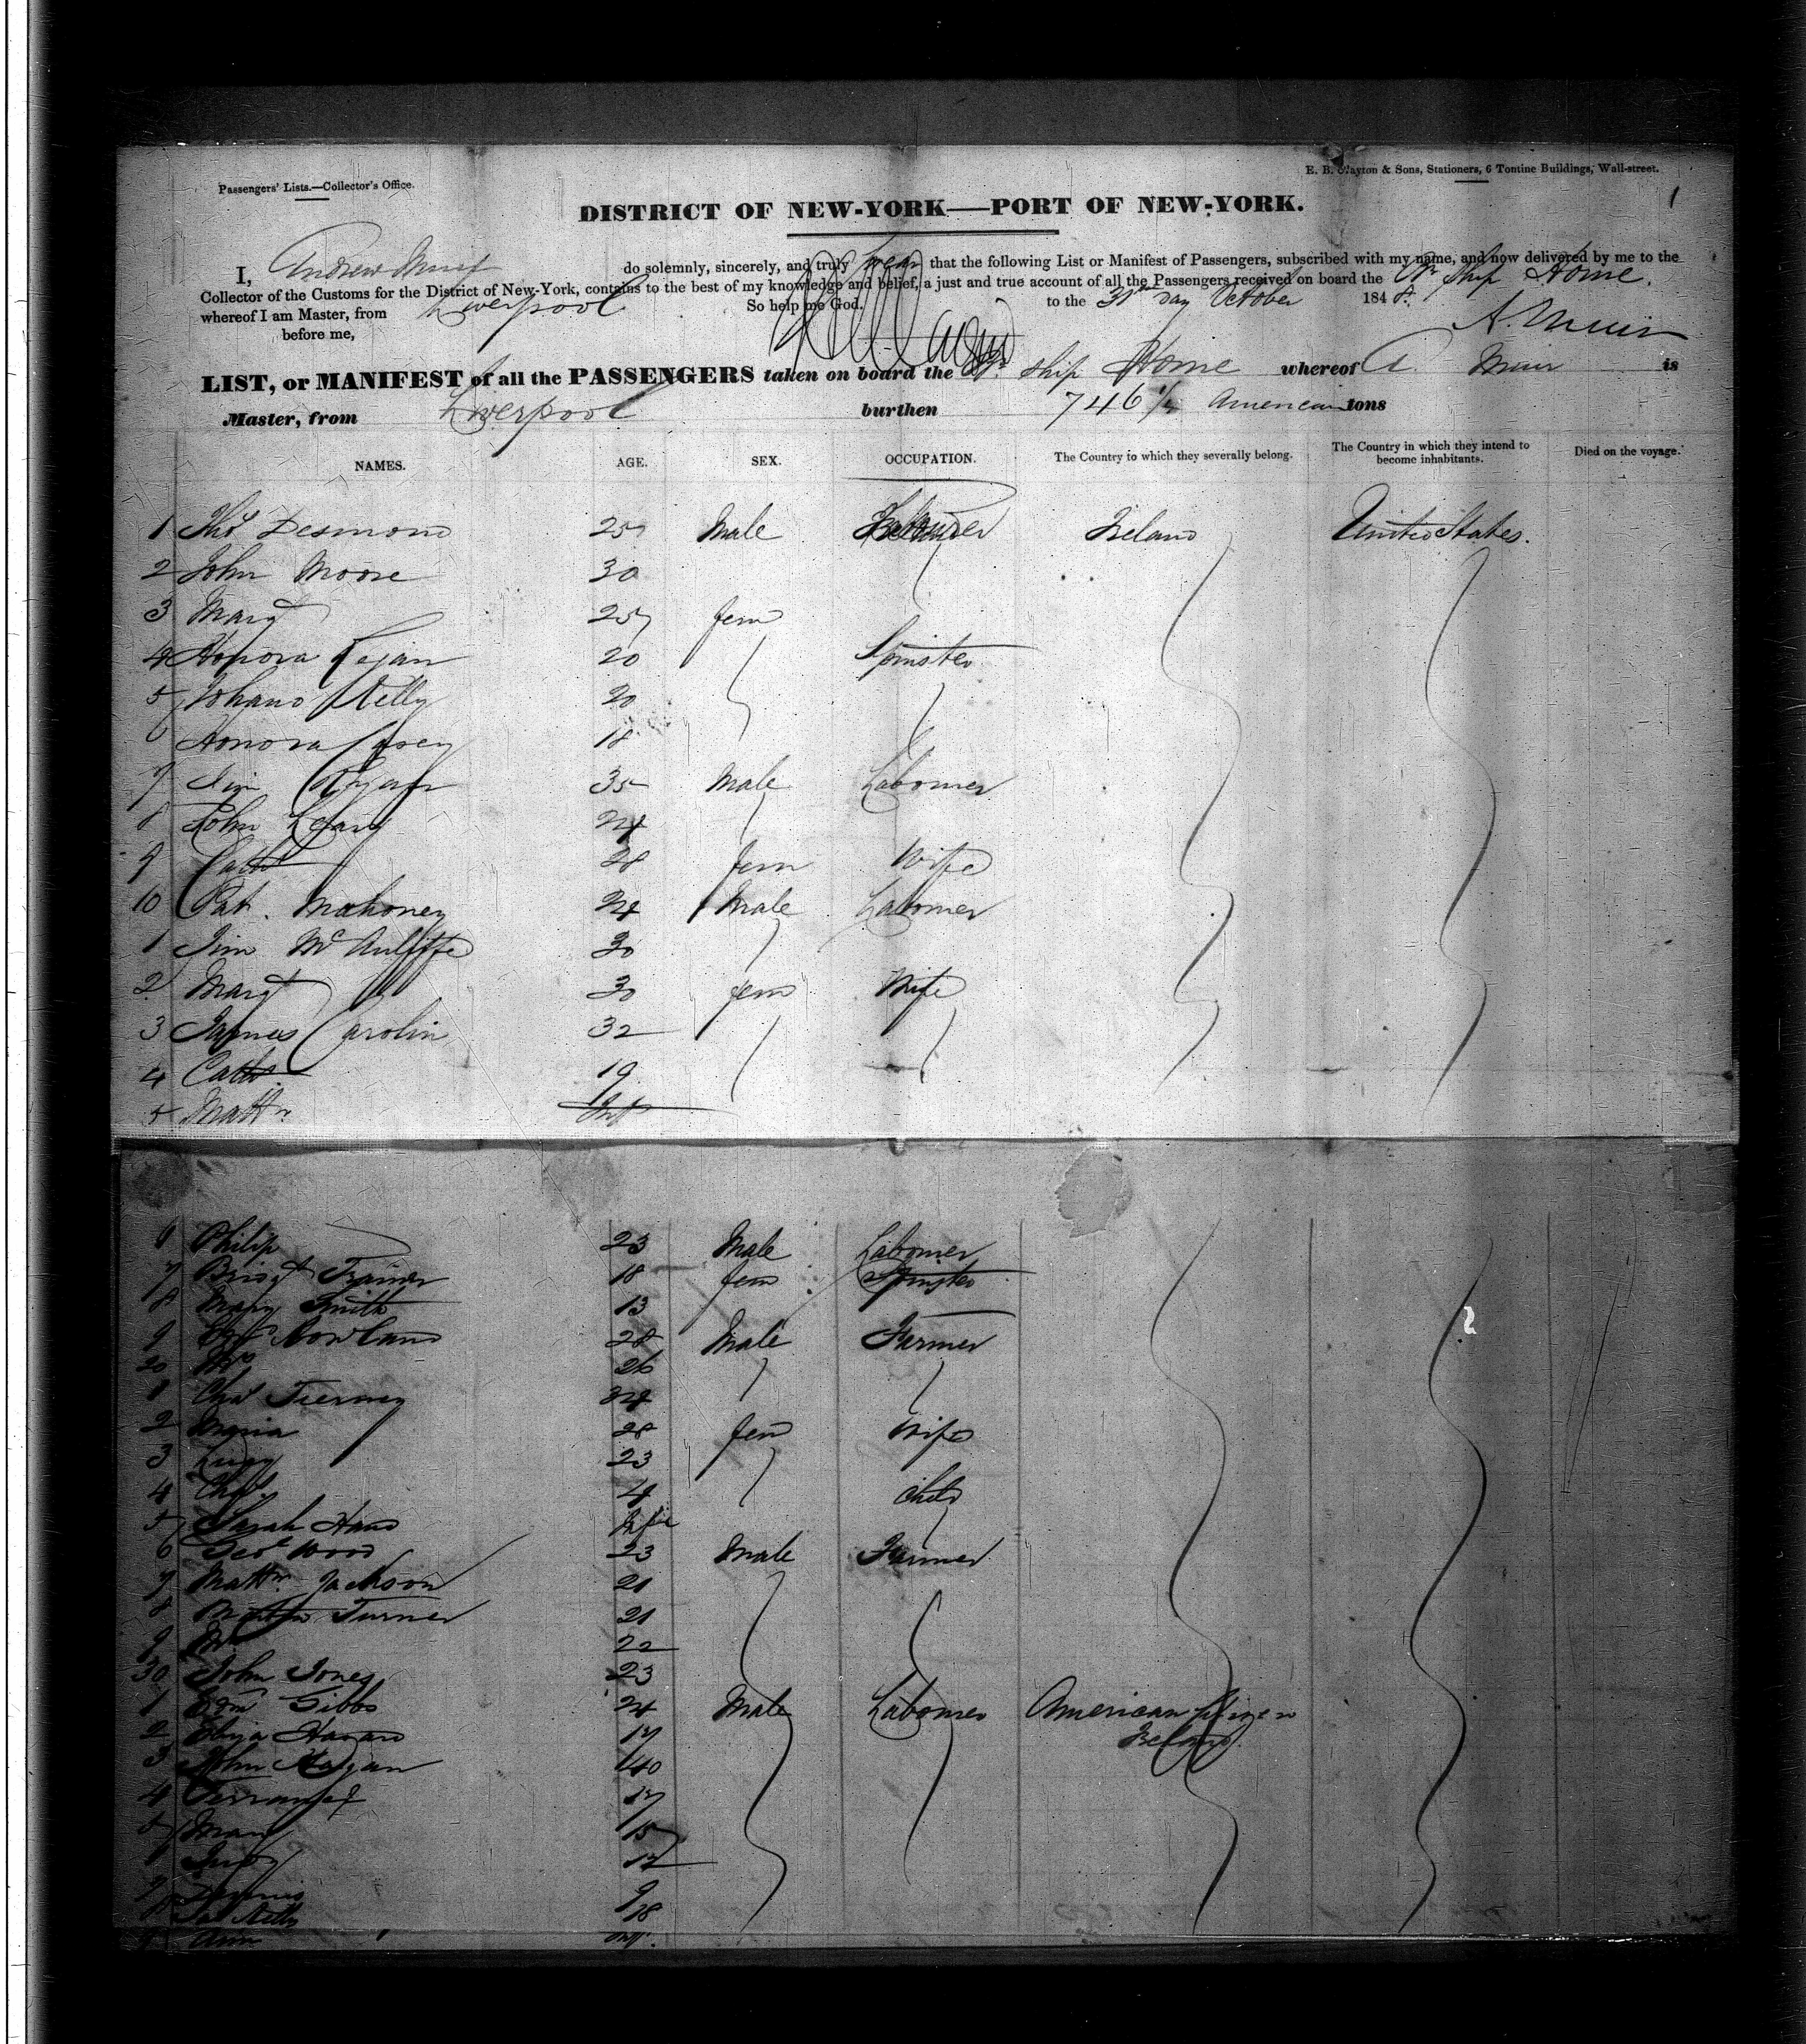 Passengers' Lists.—Collector's Office.
E. B. Clayton & Sons, Stationers, 6 Tontine Buildings, Wall-street.
1
DISTRICT OF NEW-YORK—PORT OF NEW-YORK.
I, Andrew Muir do solemnly, sincerely, and truly swear that the following List or Manifest of Passengers, subscribed with my name, and now delivered by me to the
Collector of the Customs for the District of New-York, contains to the best of my knowledge and belief, a just and true account of all the Passengers received on board the Br Ship Home.
whereof I am Master, from Liverpool So help me God. to the 31st day October 1848.
before me, A. Muir
LIST, or MANIFEST of all the PASSENGERS taken on board the Br Ship Home whereof A. Muir is
Master, from Liverpool burthen 746 American tons
NAMES. AGE. SEX. OCCUPATION. The Country to which they severally belong. The Country in which they intend to become inhabitants. Died on the voyage.
1 Thos Desmond 25 Male Labourer Ireland United States.
2 John Moore 30
3 Margt 25 fem
4 Honora 20 Spinster
5 Johano Kelly 20
6 Honora Casey 18
7 35 Male Labourer
8 John Leary 24
9 Cath 28 fem Wife
10 Pat. Mahoney 24 Male Labourer
1 Jim McAuliffe 30
2 Margt 30 fem Wife
3 James Carolin 32
4 Cath 19
5 Mattw Inf
6 Philip 23 Male Labourer
7 Bridgt Trainor 18 fem Spinster
8 Mary Smith 13
9 Rowland 28 Male Farmer
20 26
1 Chas Tierney 34
2 Maria 28 fem Wife
3 Lucy 23
4 Chas. 4 Child
5 Sarah Hand
6 Geo. Wood 23 Male Farmer
7 Mattw. Jackson 21
8 Turner 21
9 Wm 22
30 John Jones 23
1 Edm Gibbs 24 Male Labourer American Citizen
2 17 Ireland
3 John Hagan 40
4 17
5 Mary 15
6 Judy 12
7 9
8 Kelly 28
9 Ann Inf.